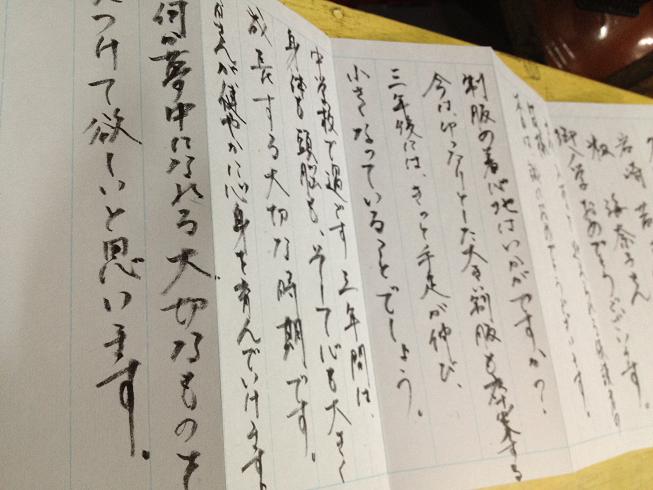 岩崎
板　海奈子さん
御入学おめでとうございます。
制服の着心地はいかがですか？
今は、ゆったりとした大きい制服も卒業する
三年後には、きっと手足が伸び、
小さくなっていることでしょう。
中学校で過ごす三年間は、
身体も頭脳も、そして心も大きく
成長する大切な時期です。
皆さんが健やかに心身を育んでいけますよ
何か夢中になれる大切なものを
つけて欲しいと思います。